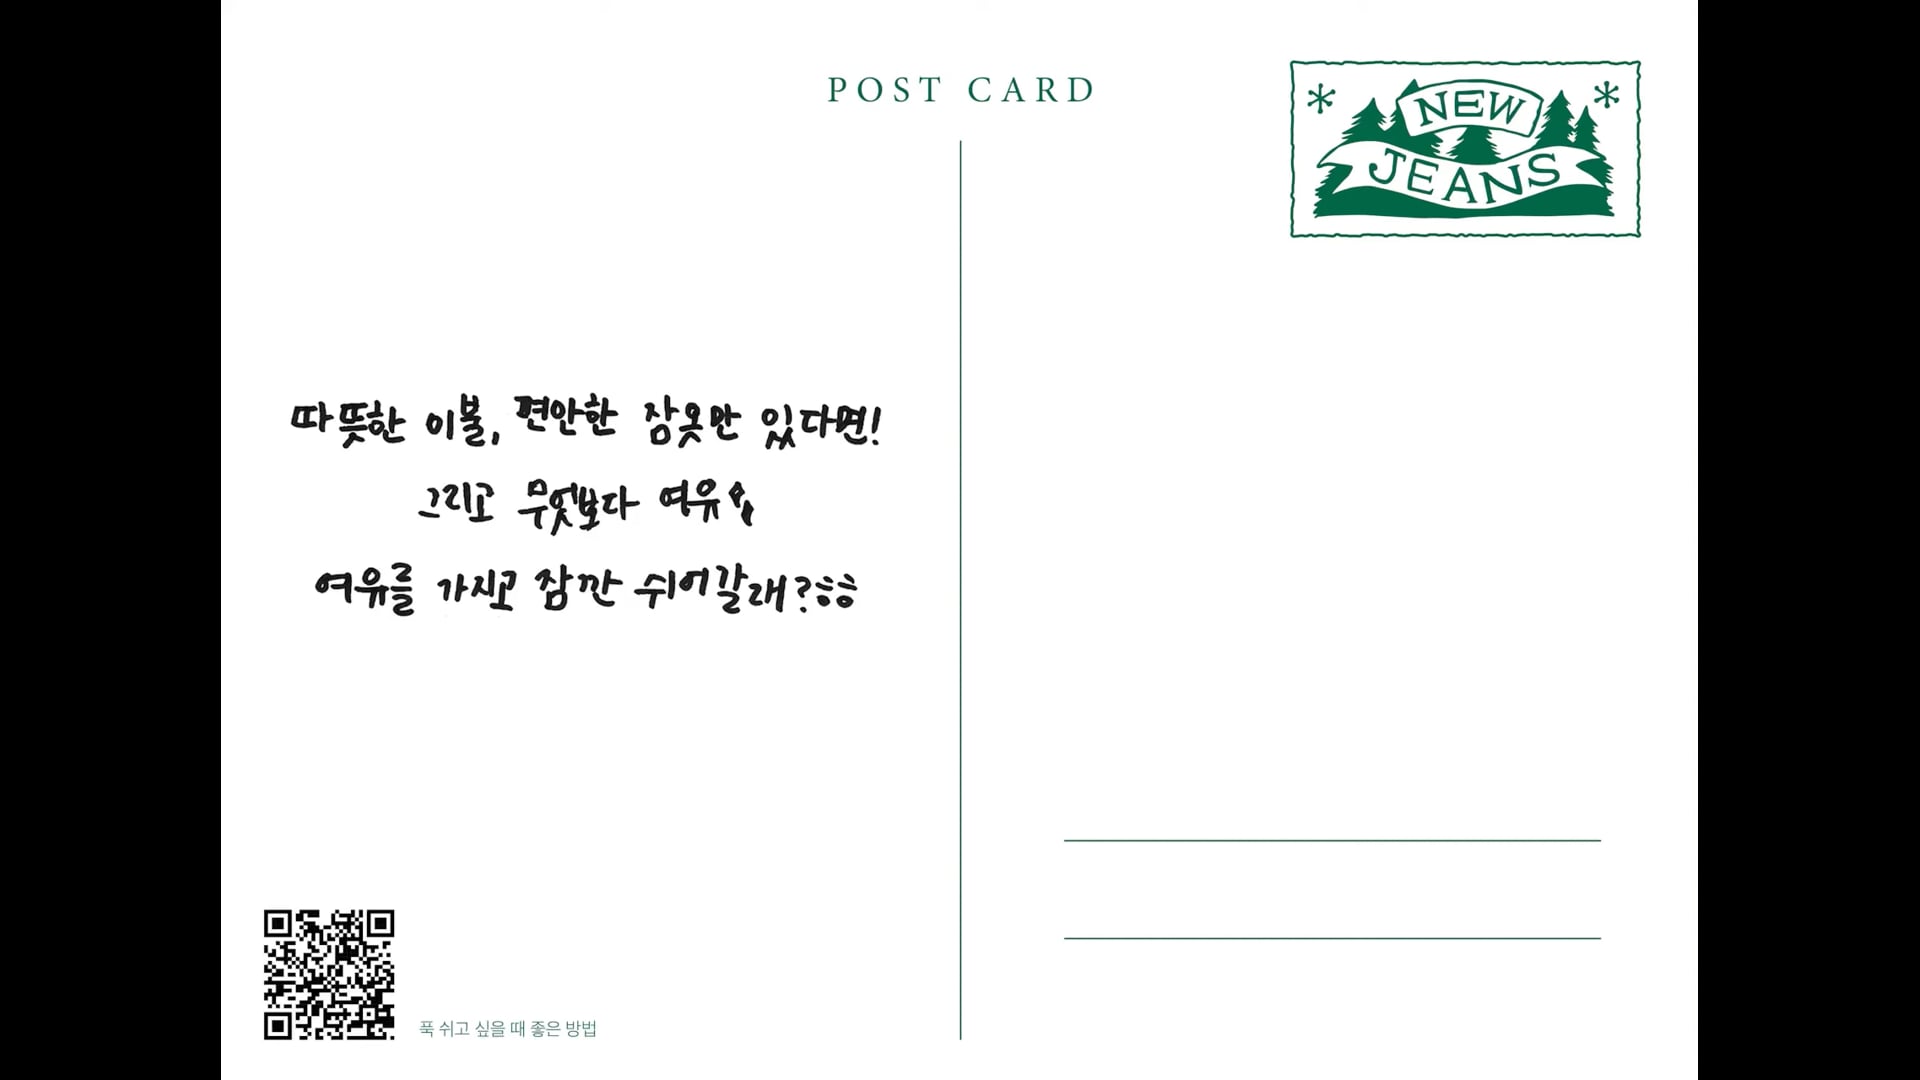 POST CARD
NEW
JEANS
따뜻한 이불, 편안한 잠옷만 있다면!
그리고 무엇보다 여유
여유를 가지고 잠깐 쉬어갈래?ㅎㅎ
푹 쉬고 싶을 때 좋은 방법